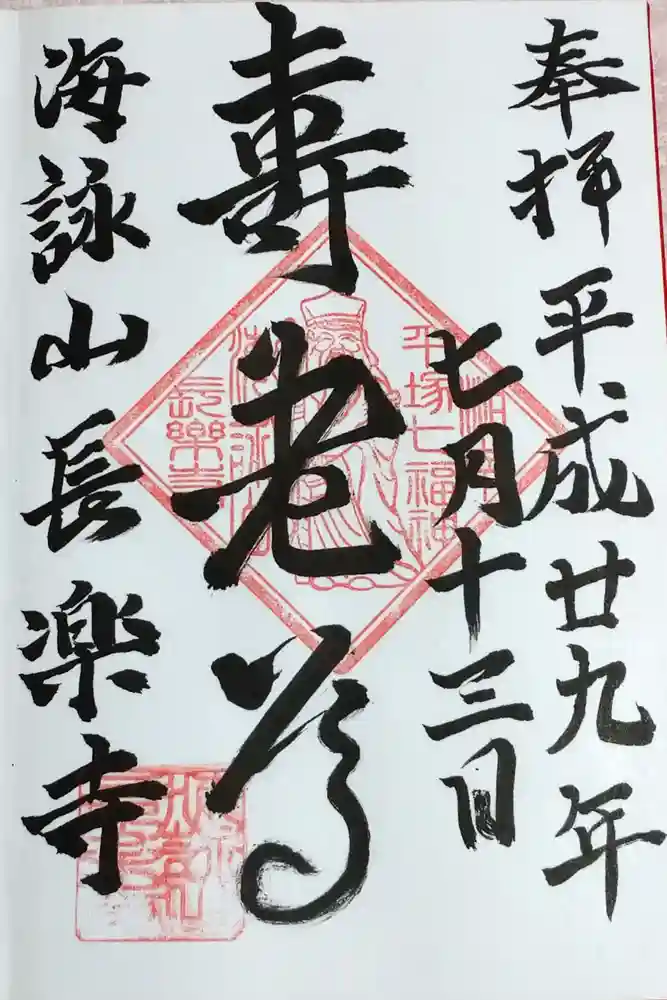 奉拝平成廿九年
七月十三日
壽老尊
海詠山長楽寺
湘南
平塚七福神
海詠山
長樂寺